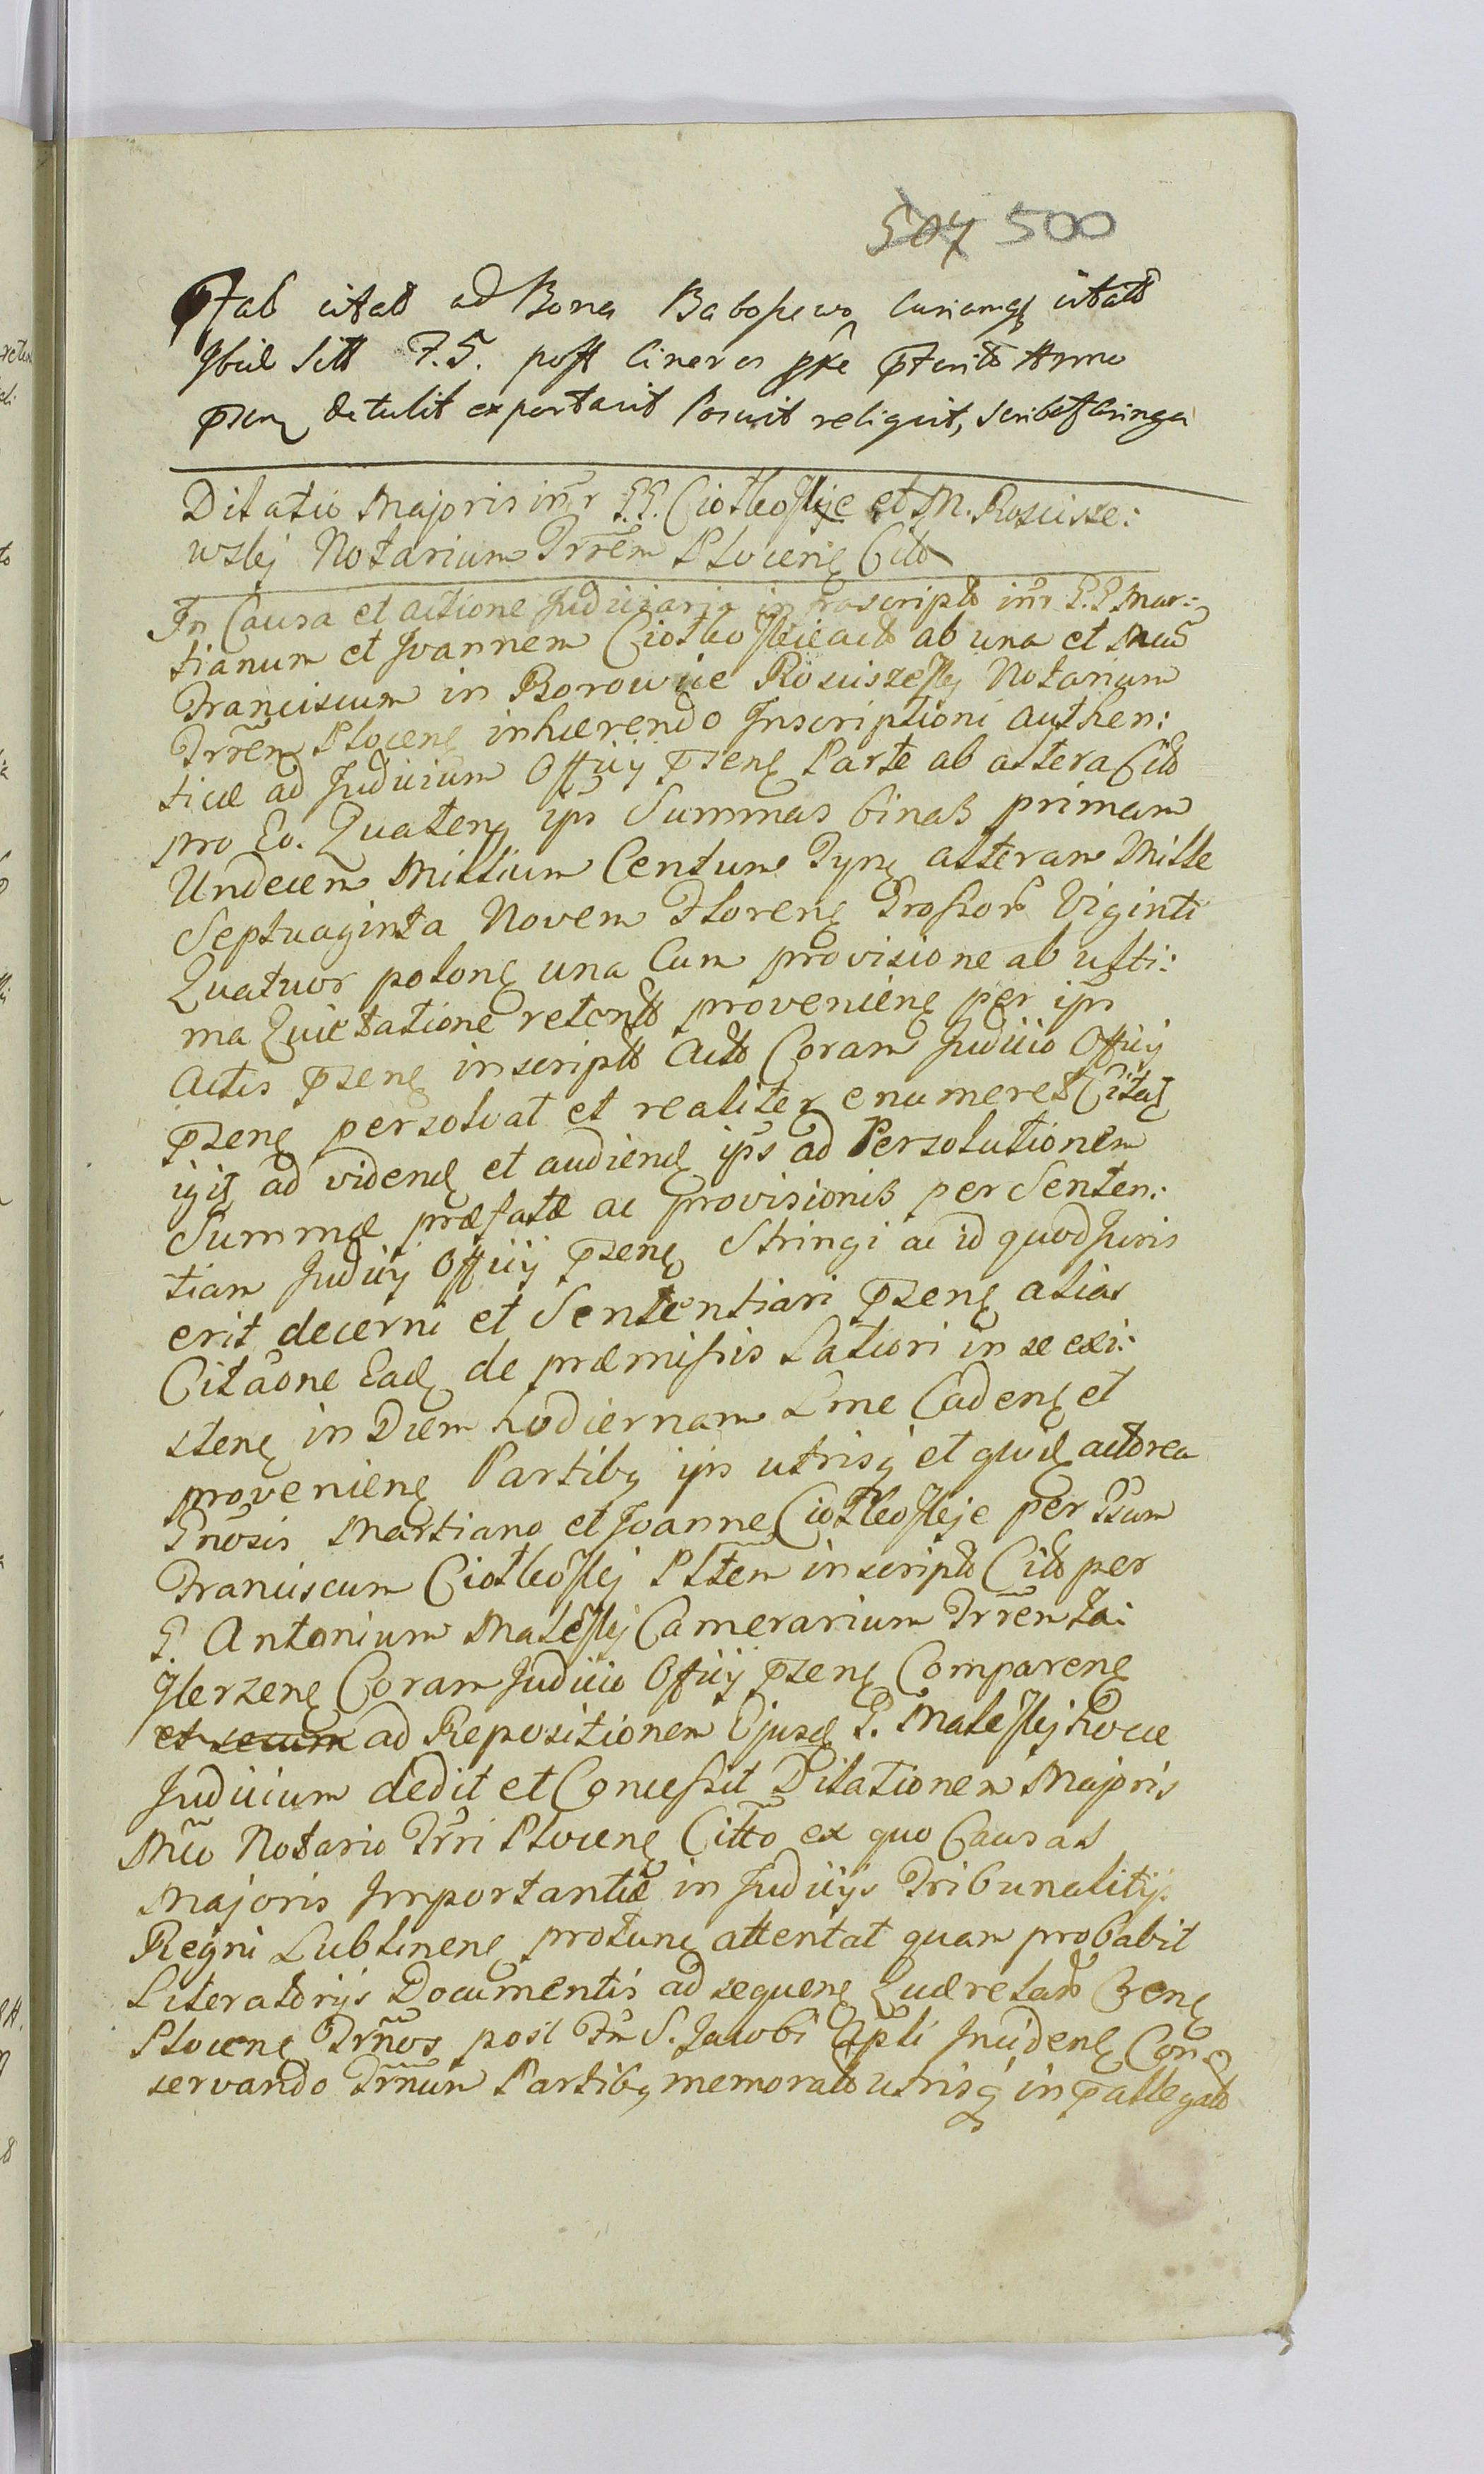 507 500
ad Bona citat
post Cineres
detulit exportavit posuit reliquit,
Dilatio Majoris intr G.G. Ciołkoskje et M. Rościsze:
wskj Notarium Trrem Plocenę Citt
In Causa et actione Judiciaria infrascript intr G.G Mar:
tianum et Joannem Ciołko act ab una et
Franciscum in Borowice Rościszeskj Notarium
Trrem Plocenę inhærendo Inscriptioni authen:
ticæ ad Judicium Officij pnsenę Parte ab altera Citt
pro Eo. Quatenꝫ ips Summas binas primam
Undecem Millium Centum Tynę alteram Mille
Septuaginta Novem Florenę Grossor Viginti
Quatuor polonę una Cum provisione ab ulti:
ma Quietatione retent provenienę per ips
Actis pnsenę inscript Act Coram Judicio Officij
pnsenę persolvat et realiter enumeret Citat
igit ad videnę et audienę ips ad Persolutionem
Summæ præfatæ ac provisionis per Senten:
tiam Judicij Officij pnsenę Stringi ac id quod Juris
erit decerni et Sententiari pnsenę alias
Citaone Eadę de præmissis Latiori in se exi:
stenę in Diem hodiernam Lme Cadenę et
provenienę Partibꝫ ips utrisqꝫ et quidę actorea
Gnosis Martiano et Joanne Ciołkoskje per Gsum
Franciscum Ciołkoskj Plttem inscript Citt per
G. Antonium Maleskj Camerarium Trrem Za:
kterzenę Coram Judicio Officij pnsenę Comparenę
et secum ad Repositionem Ejusdę G. Maleskj hocce
Judicium dedit et Concessit Dilationem Majoris
Mco Notario Trri Plocenę Citto ex quo Causas
Majoris Importantiæ in Judicijs Tribunalitijs
Regni Lublinenę protunę attentat quam probabit
Literatorijs Documentis ad sequenę Quærelar
Plocenę Trmnos post Fm S. Jacobi Apli Incidenę Con
servando Trmnum Partibꝫ memorat utrisqꝫ in pallegat